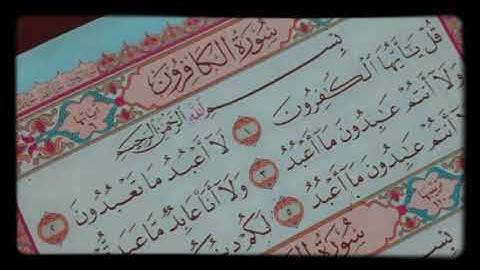 سُورَةُ الْكَافِرُونَ
بِسْمِ اللَّهِ الرَّحْمَٰنِ الرَّحِيمِ
قُلْ يَٰٓأَيُّهَا ٱلْكَٰفِرُونَ ١ لَآ أَعْبُدُ مَا تَعْبُدُونَ ٢
وَلَآ أَنتُمْ عَٰبِدُونَ مَآ أَعْبُدُ ٣ وَلَآ أَنَا۠ عَابِدٌ مَّا
وَلَآ أَنتُمْ عَٰبِدُونَ مَآ أَعْبُدُ ٥ لَكُمْ
سُورَةُ